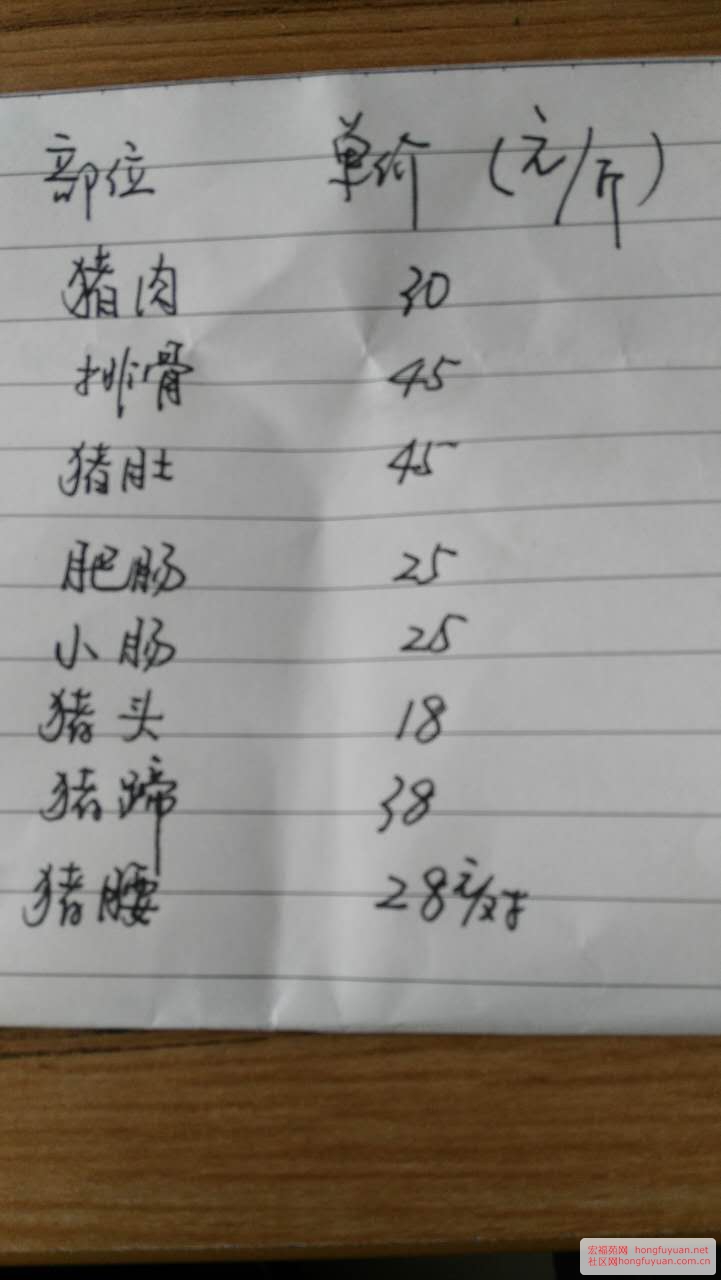 部位 单价（元/斤）
猪肉 30
排骨 45
猪肚 45
肥肠 25
小肠 25
猪头 18
猪蹄 38
猪腰 28元/对
宏福苑网 hongfuyuan.net
社区网hongfuyuan.com.cn